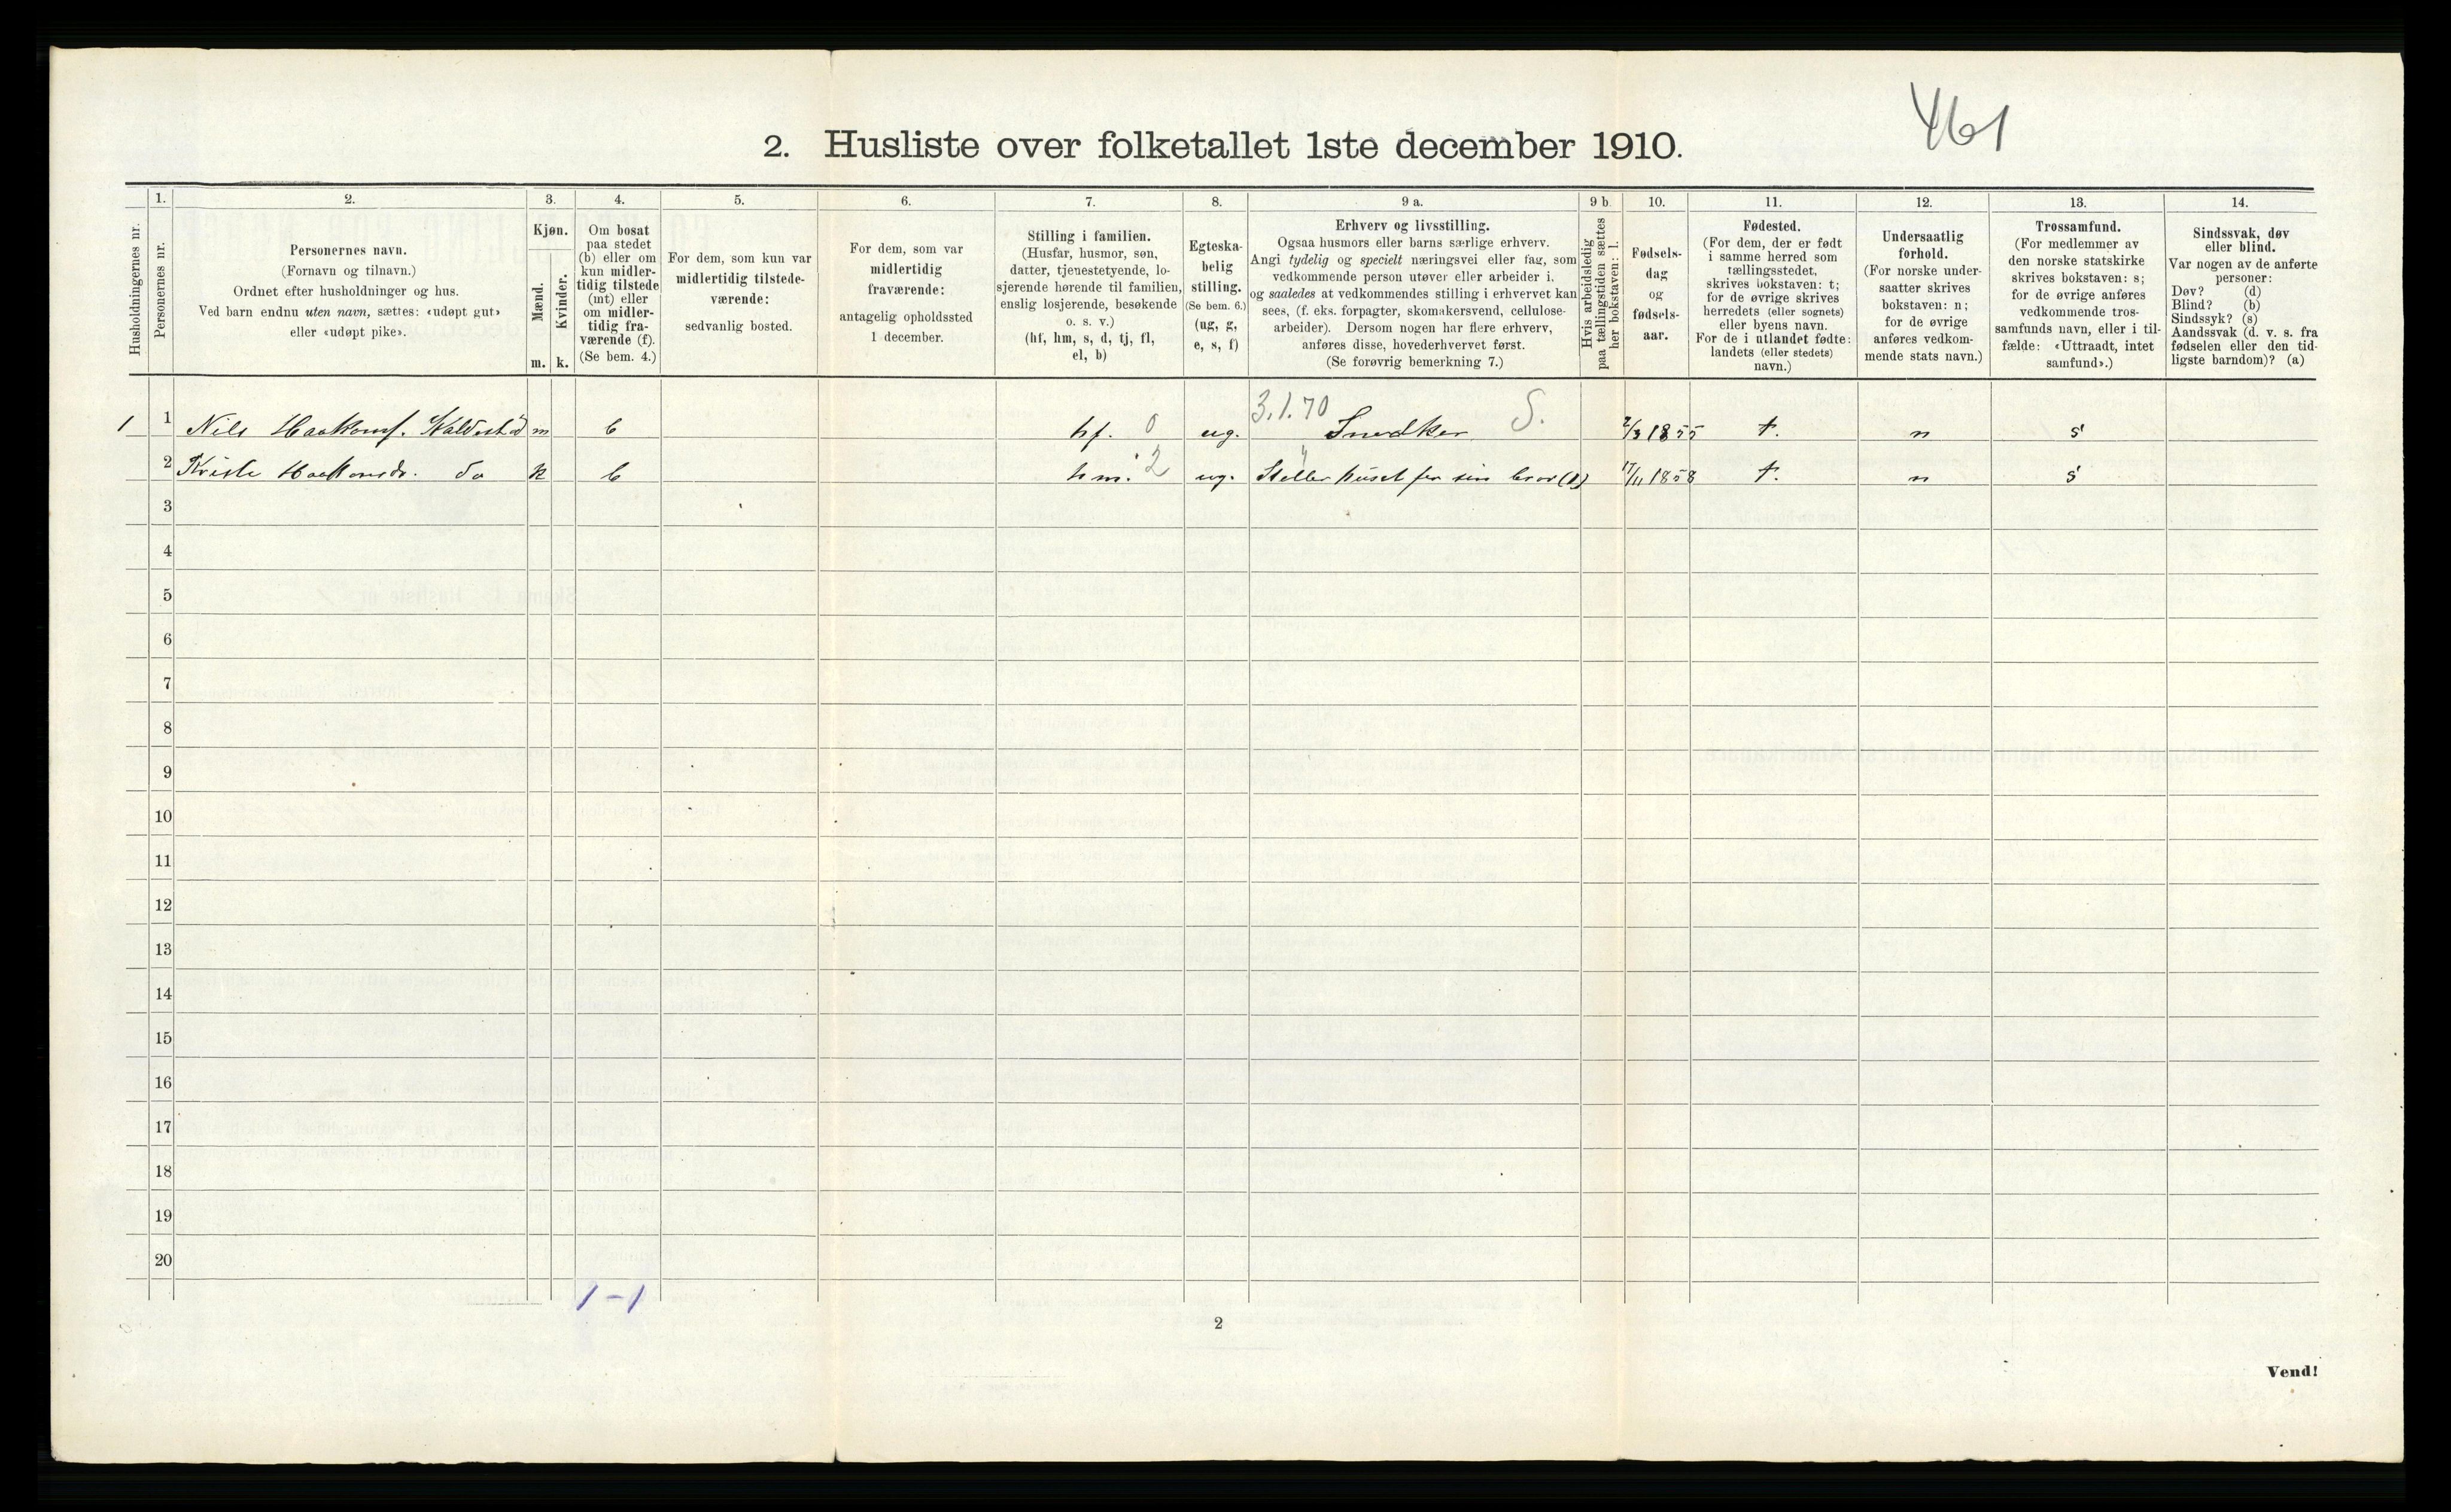 461
2. Husliste over folketallet 1ste december 1910.
1. 2. 3. 4. 5. 6. 7. 8. 9 a. 9 b. 10. 11. 12. 13. 14.
Husholdningernes nr.
Personernes nr.
Personernes navn.
(Fornavn og tilnavn.)
Ordnet efter husholdninger og hus.
Ved barn endnu uten navn, sættes: «udøpt gut»
eller «udøpt pike».
Kjøn.
Mænd.
Kvinder.
m. k.
Om bosat
paa stedet
(b) eller om
kun midler-
tidig tilstede
(mt) eller
om midler-
tidig fra-
værende (f).
(Se bem. 4.)
For dem, som kun var
midlertidig tilstede-
værende:
sedvanlig bosted.
For dem, som var
midlertidig
fraværende:
antagelig opholdssted
1 december.
Stilling i familien.
(Husfar, husmor, søn,
datter, tjenestetyende, lo-
sjerende hørende til familien,
enslig losjerende, besøkende
o. s. v.)
(hf, hm, s, d, tj, fl,
el, b)
Egteska-
belig
stilling.
(Se bem. 6.)
(ug, g,
e, s, f)
Erhverv og livsstilling.
Ogsaa husmors eller barns særlige erhverv.
Angi tydelig og specielt næringsvei eller fag, som
vedkommende person utøver eller arbeider i,
og saaledes at vedkommendes stilling i erhvervet kan
sees, (f. eks. forpagter, skomakersvend, cellulose-
arbeider). Dersom nogen har flere erhverv,
anføres disse, hovederhvervet først.
(Se forøvrig bemerkning 7.)
Hvis arbeidsledig
paa tællingstiden sættes
her bokstaven: l.
Fødsels-
dag
og
fødsels-
aar.
Fødested.
(For dem, der er født
i samme herred som
tællingsstedet,
skrives bokstaven: t;
for de øvrige skrives
herredets (eller sognets)
eller byens navn.
For de i utlandet fødte:
landets (eller stedets)
navn.)
Undersaatlig
forhold.
(For norske under-
saatter skrives
bokstaven: n;
for de øvrige
anføres vedkom-
mende stats navn.)
Trossamfund.
(For medlemmer av
den norske statskirke
skrives bokstaven: s;
for de øvrige anføres
vedkommende tros-
samfunds navn, eller i til-
fælde: «Uttraadt, intet
samfund».)
Sindssvak, døv
eller blind.
Var nogen av de anførte
personer:
Døv? (d)
Blind? (b)
Sindssyk? (s)
Aandssvak (d. v. s. fra
fødselen eller den tid-
ligste barndom)? (a)
3.1.70 S.
1 1 Nils Haakons. m b hf. 0 ug. Snedker 1855 t. n s
2 Haakonsdr. do k b hm. 2 ug. Steller huset for sin bror (1) 17/11 1858 t. n s
3
4
5
6
7
8
9
10
11
12
13
14
15
16
17
18
19
20
1-1
2
Vend!